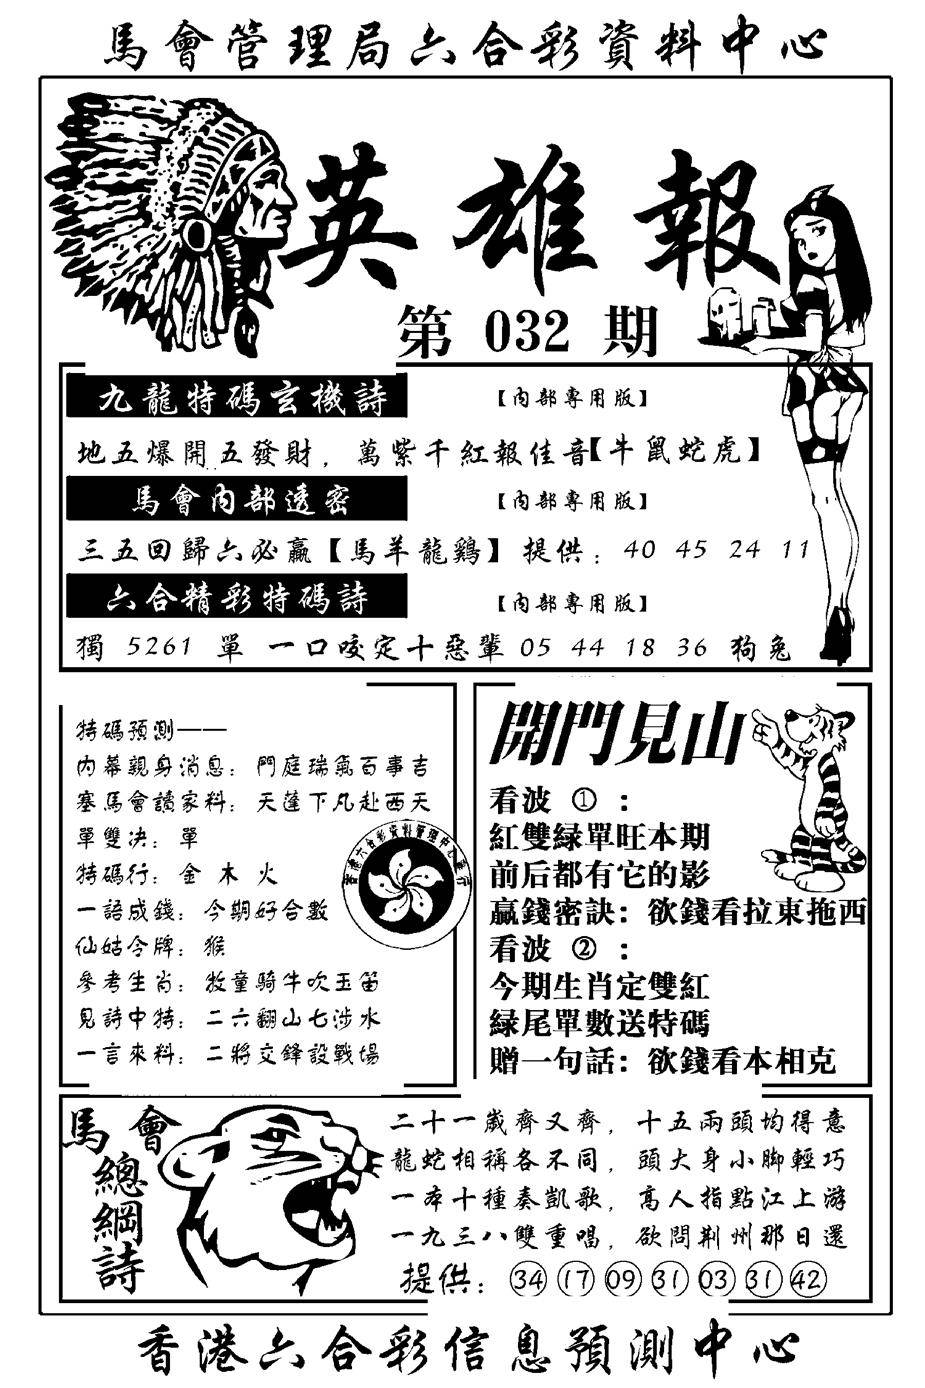 馬會管理局六合彩資料中心
英雄報
第 032 期
九龍特碼玄機詩 【內部專用版】
地五爆開五發財，萬紫千紅報佳音【牛鼠蛇虎】
馬會內部透密 【內部專用版】
三五回歸六必贏【馬羊龍鷄】 提供：40 45 24 11
六合精彩特碼詩 【內部專用版】
獨 5261 單 一口咬定十惡輩 05 44 18 36 狗兔
特碼預測——
內幕親身消息：門庭瑞氣百事吉
塞馬會讀家料：天蓬下凡赴西天
單雙决：單
特碼行：金 木 火
一語成錢：今期好合數
仙姑令牌：猴
參考生肖：牧童騎牛吹玉笛
見詩中特：二六翻山七涉水
一言來料：二將交鋒設戰場
香港六合彩資料管理中心發行
開門見山
看波 ①：
紅雙緑單旺本期
前后都有它的影
贏錢密訣：欲錢看拉東拖西
看波 ②：
今期生肖定雙紅
緑尾單數送特碼
贈一句話：欲錢看本相克
馬會
總綱詩
二十一歲齊又齊，十五兩頭均得意
龍蛇相稱各不同，頭大身小脚輕巧
一本十種奏凱歌，高人指點江上游
一九三八雙重唱，欲問荆州那日還
提供：34 17 09 31 03 31 42
香港六合彩信息預測中心